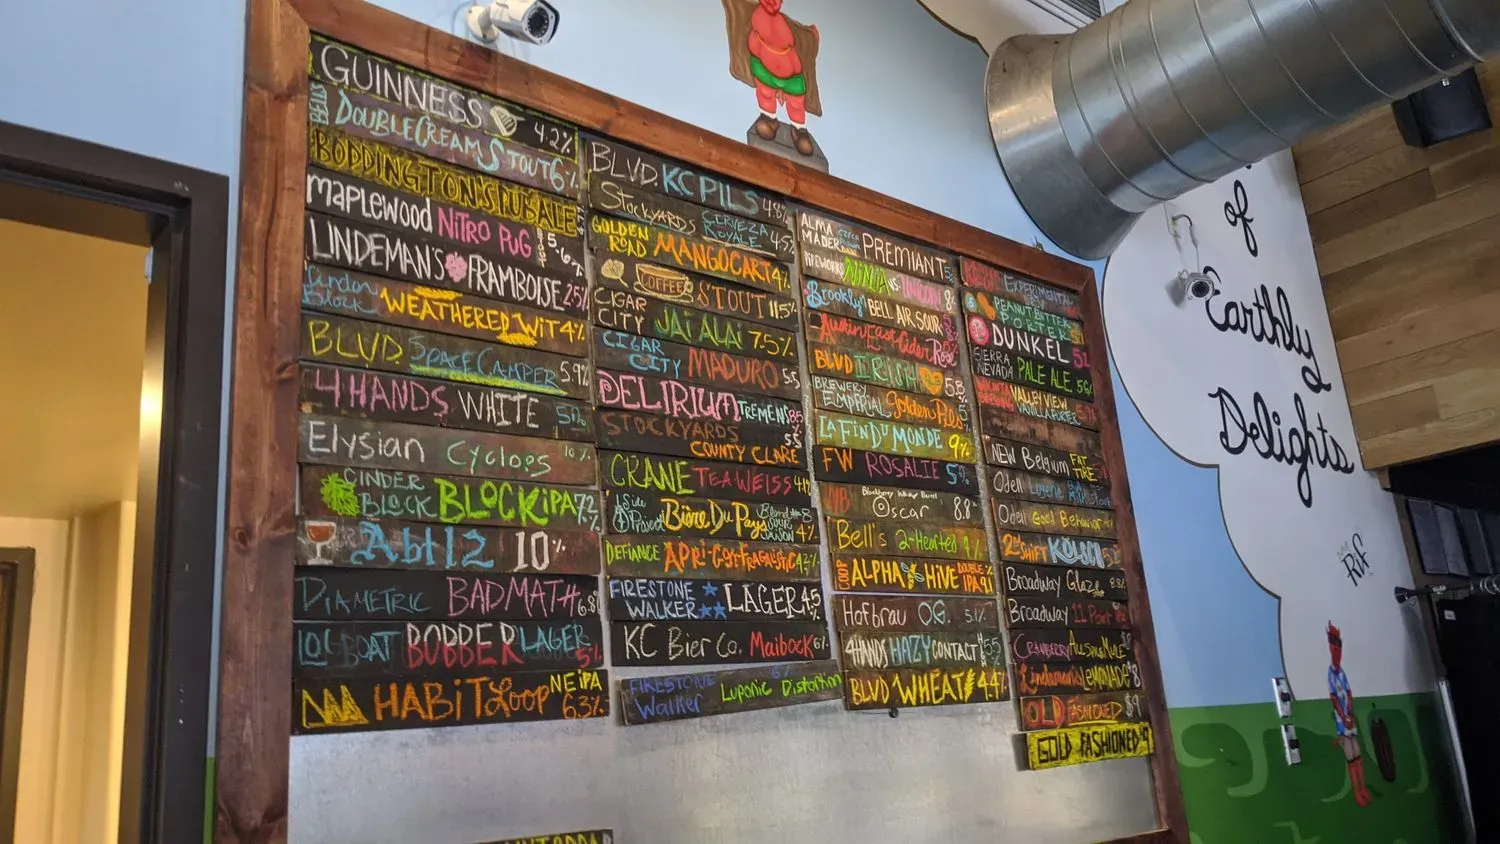 GUINNESS 4.2%
BELLS DOUBLE CREAM STOUT 6%
BODDINGTON'S PUB ALE
MAPLEWOOD NITRO PUG
LINDEMAN'S FRAMBOISE 2.5%
Cinder Block WEATHERED WIT 4%
BLVD SPACE CAMPER 5.9%
4 HANDS WHITE 5%
Elysian Cyclops
CINDER BLOCK BLOCK IPA 7.2%
Abt 12 10%
DIAMETRIC BAD MATH 6.8%
LOGBOAT BOBBER LAGER 5%
HABIT LOOP NEIPA 6.3%
BLVD. KC PILS 4.8%
STOCKYARDS CERVEZA ROYALE 4.5%
GOLDEN ROAD MANGO CART 4%
COFFEE STOUT 11.5%
CIGAR CITY JAI ALAI 7.5%
CIGAR CITY MADURO 5.5
DELIRIUM TREMENS 8.5
STOCKYARDS COUNTY CLARE 5.5%
CRANE TEA-WEISS 4.1%
Side Project Bière Du Pays Blend #8 4%
DEFIANCE APRI-COST-FRAGALISTIC
FIRESTONE WALKER LAGER 4.5%
KC Bier Co. Maibock 6%
FIRESTONE Walker Luponic Distortion
ALMA MADER PREMIANT 5
NINJA VS. UNICORN 8
Brooklyn BELL AIR SOUR
Austin East Cider Rosé
BLVD IRISH 5.8
BREWERY EMPERIAL golden Pils 5%
LA FIN DU MONDE 9%
FW ROSALIE 5%
NB Oscar 8.2%
Bell's 2-Hearted
COOP ALPHA HIVE DOUBLE IPA 9.1
Hofbrau O.G. 5.1%
4 HANDS HAZY CONTACT 5.5%
BLVD WHEAT 4.4%
EXPERIMENTAL
PEANUT BUTTER PORTER
DUNKEL 5.1
SIERRA NEVADA PALE ALE 5.6%
VALLEY VIEW VANILLA PORTER
NEW Belgium FAT TIRE
Odell
Odell Good Behavior
2nd SHIFT KÖLSCH
Broadway
Broadway
CRANBERRY ALLSPICE MULE
Lindemans LEMONADE $8
OLD FASHIONED $9
GOLD FASHIONED 9
of
Earthly
Delights